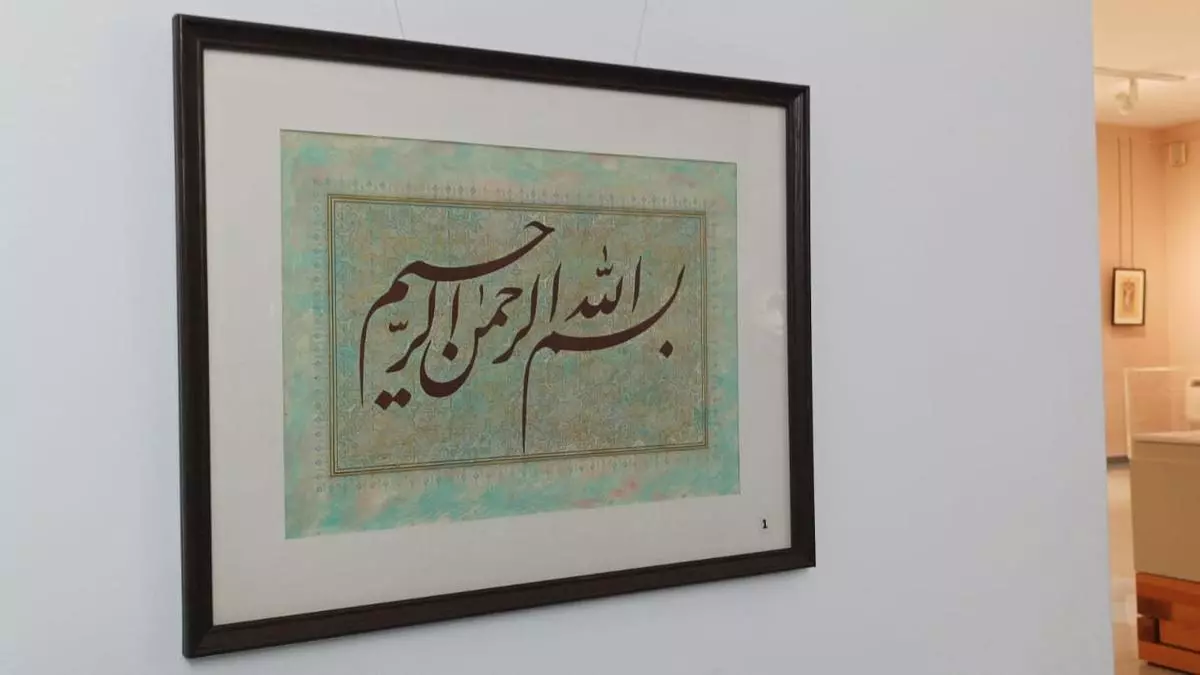 بسم الله الرحمن الرحیم
1